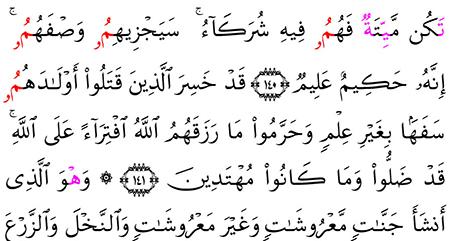 تَكُن مَّيِّتَةٌ فَهُمُۥ فِيهِ شُرَكَآءُ ۚ سَيَجْزِيهِمُۥ وَصْفَهُمُۥ ۚ
إِنَّهُۥ حَكِيمٌ عَلِيمٌ ﴿١٤٠﴾ قَدْ خَسِرَ ٱلَّذِينَ قَتَلُوٓا۟ أَوْلَٰدَهُمُۥ
سَفَهَۢا بِغَيْرِ عِلْمٍ وَحَرَّمُوا۟ مَا رَزَقَهُمُ ٱللَّهُ ٱفْتِرَآءً عَلَى ٱللَّهِ ۚ
قَدْ ضَلُّوا۟ وَمَا كَانُوا۟ مُهْتَدِينَ ﴿١٤١﴾ ۞ وَهْوَ ٱلَّذِىٓ
أَنشَأَ جَنَّٰتٍ مَّعْرُوشَٰتٍ وَغَيْرَ مَعْرُوشَٰتٍ وَٱلنَّخْلَ وَٱلزَّرْعَ